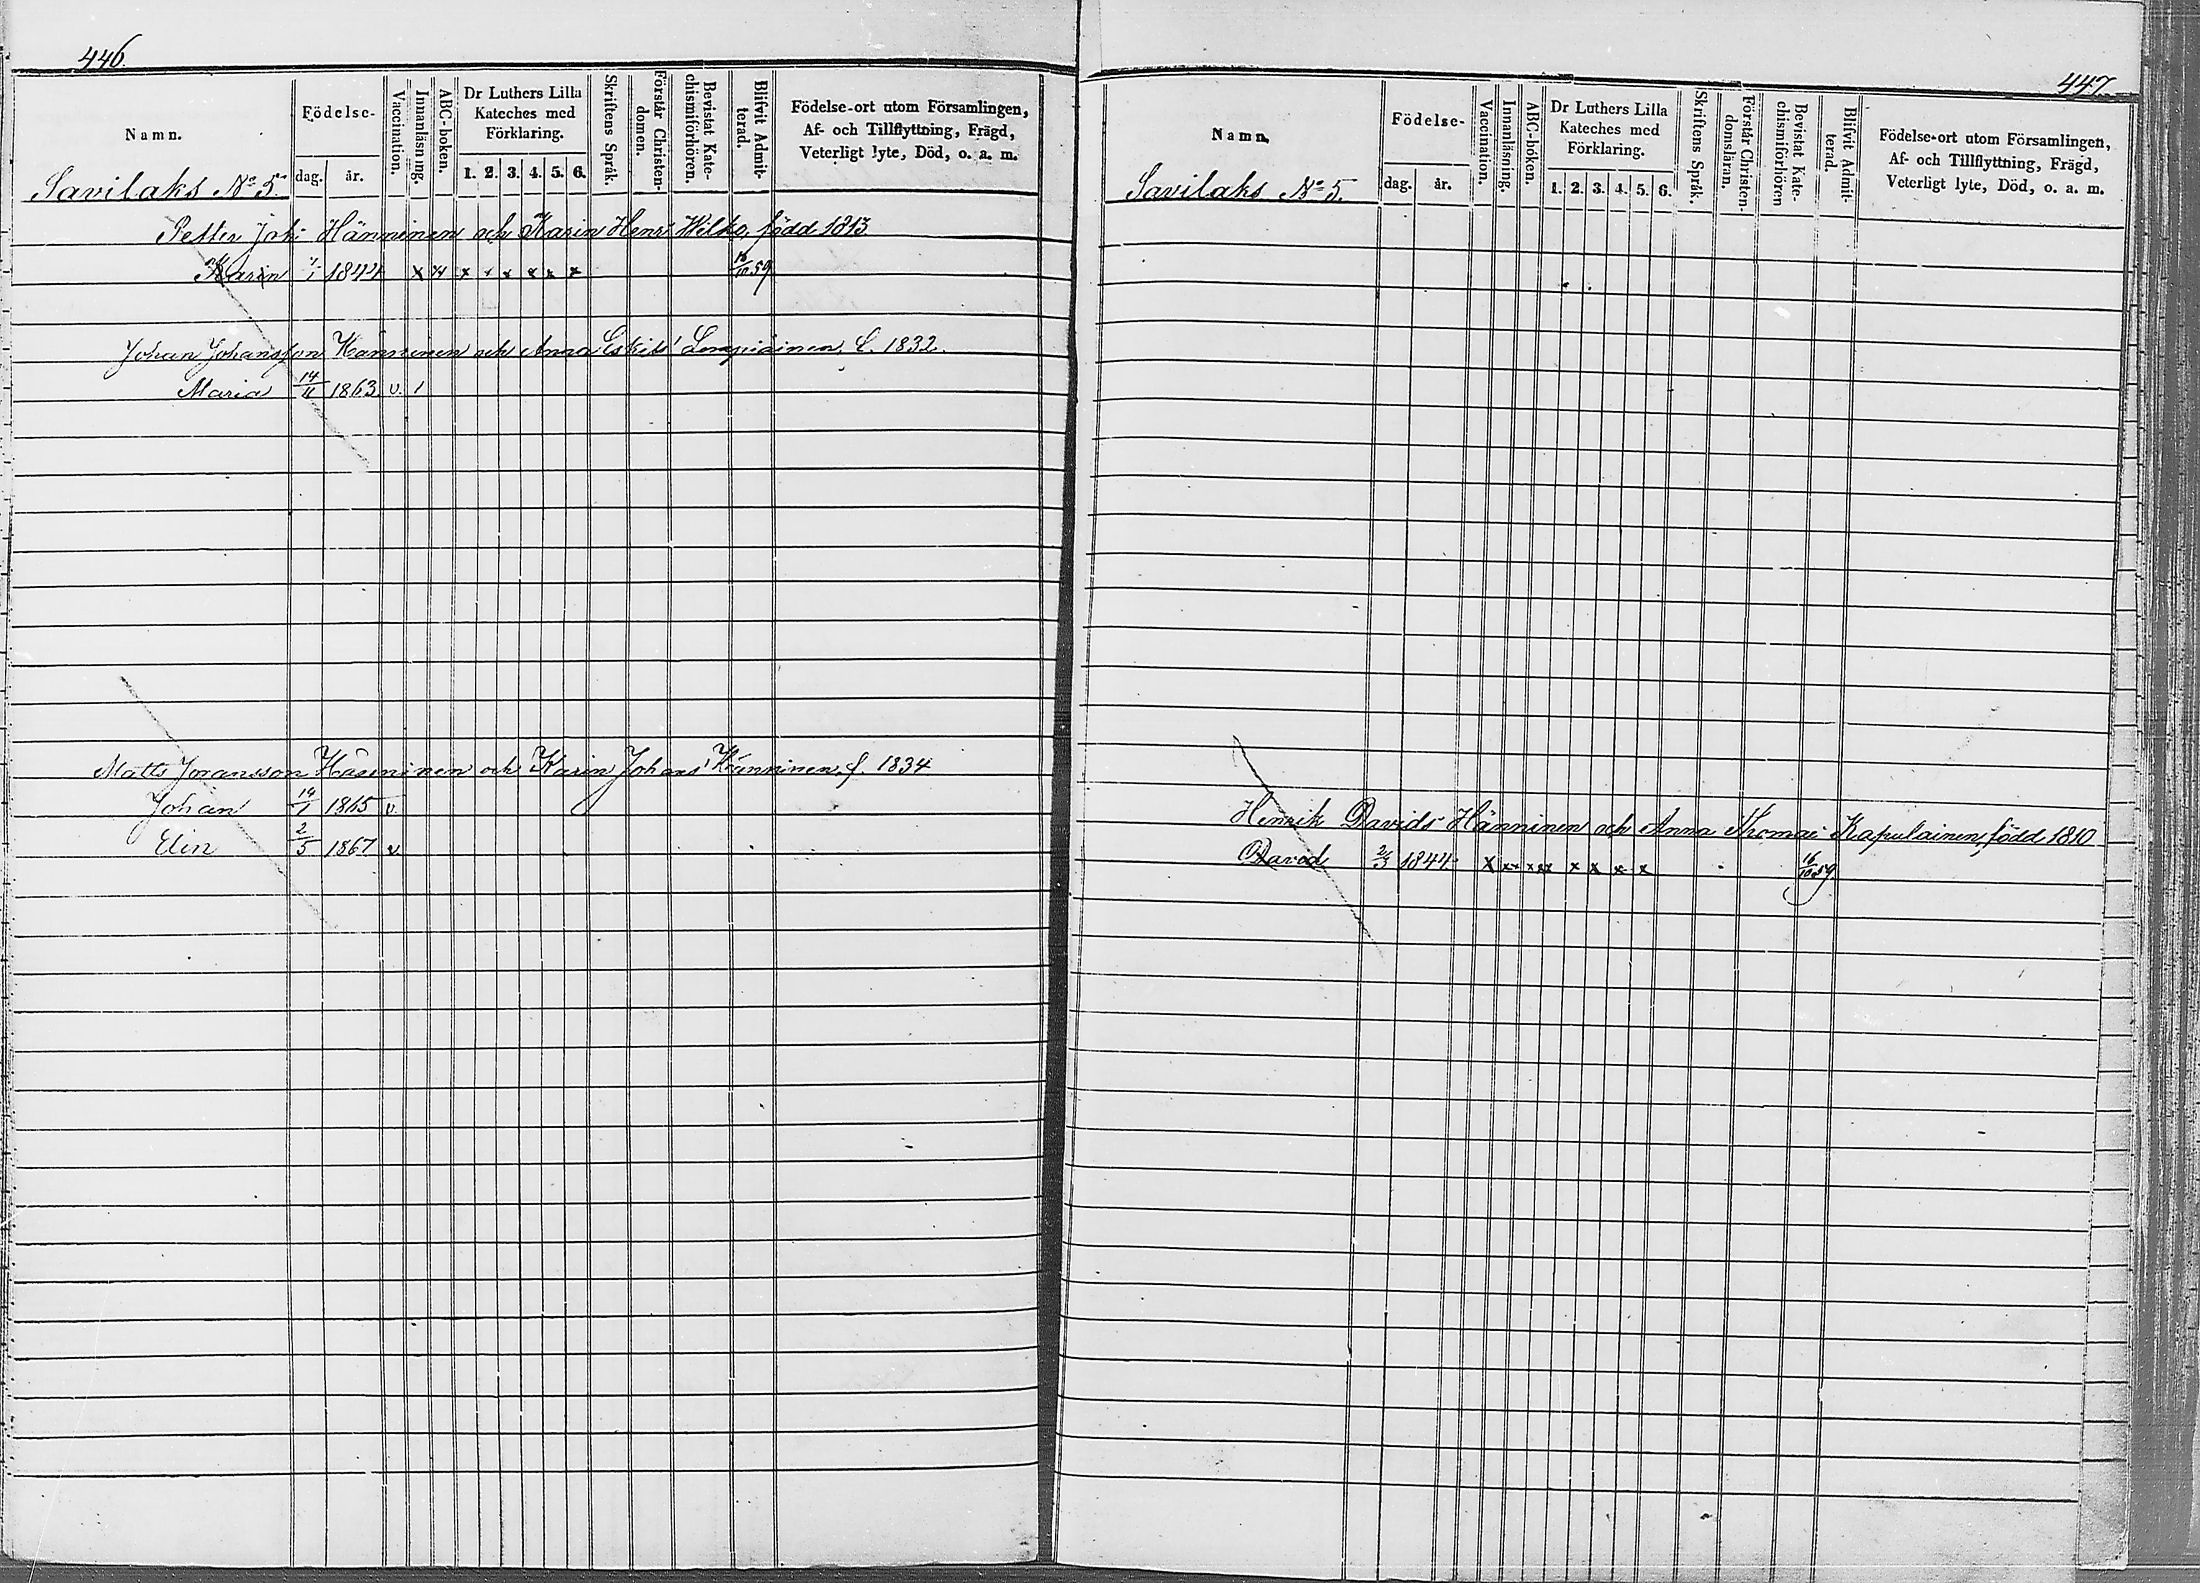 446.
Namn.
Födelse-
dag. år.
Vaccination.
Innanläsning.
ABC-boken.
Dr Luthers Lilla
Kateches med
Förklaring.
1. 2. 3. 4. 5. 6.
Skriftens Språk.
Förstår Christen-
domen.
Bevistat Kate-
chismiförhören.
Blifvit Admit-
terad.
Födelse-ort utom Församlingen,
Af- och Tillflyttning, Frägd,
Veterligt lyte, Död, o. a. m.
Savilaks No 5.
Petter Joh: Hänninen och Karin Henr: Wilko, född 1813
Karin 1844 x x x x x x x x 16/10 59
Johan Johansson Hänninen och Anna Eskils' Lempiäinen, f. 1832.
Maria 14/11 1863 v. 1
Matts Johansson Hänninen och Karin Johans' Hänninen, f. 1834
Johan 14/1 1865 v.
Elin 2/5 1867 v.
447
Namn.
Födelse-
dag. år.
Vaccination.
Innanläsning.
ABC-boken.
Dr Luthers Lilla
Kateches med
Förklaring.
1. 2. 3. 4. 5. 6.
Skriftens Språk.
Förstår Christen-
domsläran.
Bevistat Kate-
chismiförhören
Blifvit Admit-
terad.
Födelse-ort utom Församlingen,
Af- och Tillflyttning, Frägd,
Veterligt lyte, Död, o. a. m.
Savilaks No 5.
Henrik Davids Hänninen och Anna Thomae Kapulainen, född 1810
David 2/3 1844. x xx xxx x x x x 16/10 59.